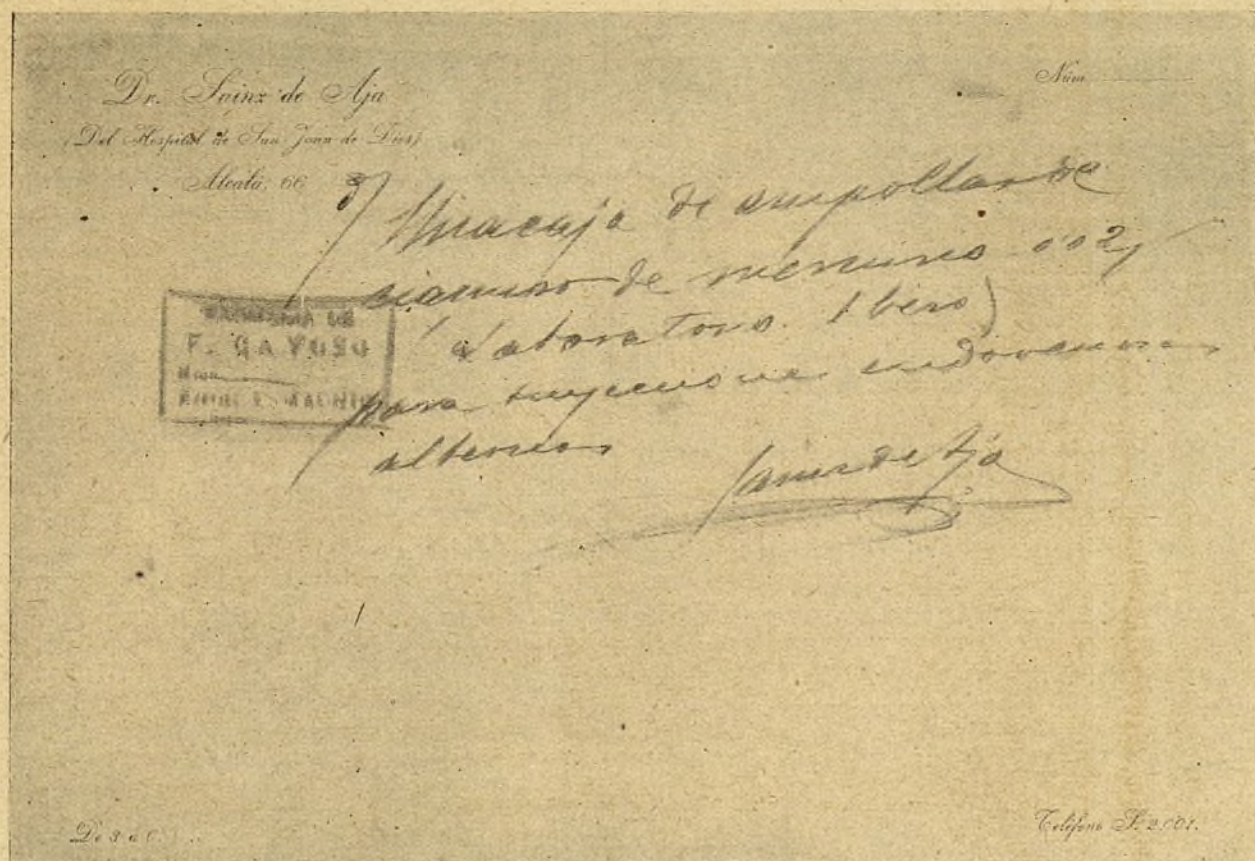 Dr. Sainz de Aja
(Del Hospital de San Juan de Dios)
Alcalá, 66
Núm.
Una caja de ampollas de
cianuro de mercurio 0'02,
(Laboratorio Ibero)
para inyecciones endovenosas
alternas
Sainz de Aja
FARMACIA DE
F. GAYOSO
De 3 a 6.
Teléfono S. 2.001.